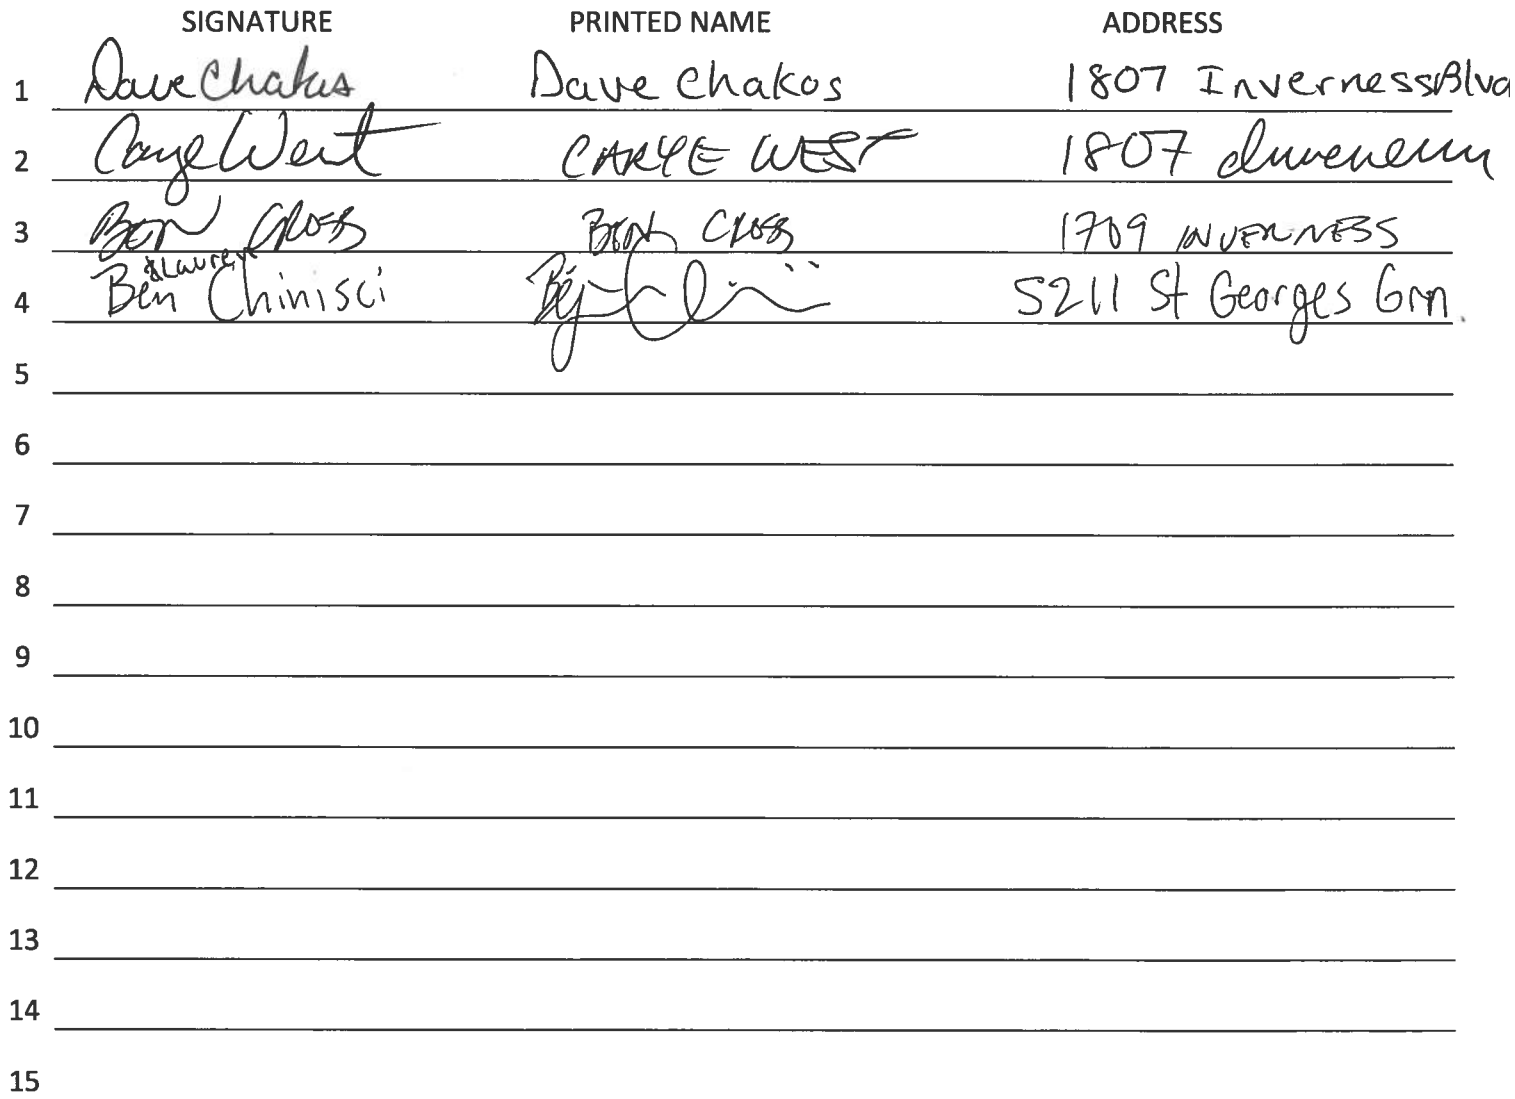 SIGNATURE PRINTED NAME ADDRESS
1 Dave Chakos Dave Chakos 1807 Inverness Blvd
2 Carye West CARYE WEST 1807 Inverness
3 BEN CROSS BEN CROSS 1709 INVERNESS
& Lauren
4 Ben Chinisci 5211 St Georges Grn.
5
6
7
8
9
10
11
12
13
14
15